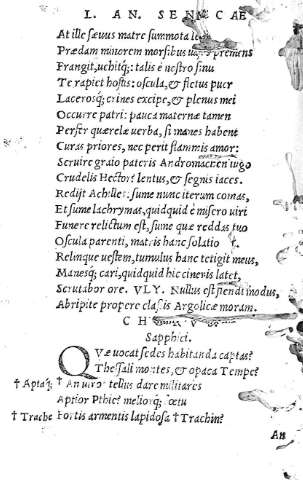 L. AN. SENECAE
At ille sævus matre summota leo
Prædam minorem morsibus premens
Frangit, uehitq;: talis è nostro sinu
Te rapiet hostis: oscula, & fletus puer
Lacerosq; crines excipe, & plenus mei
Occurre patri: pauca maternæ tamen
Perfer quærelæ uerba, si manes habent
Curas priores, nec perit flammis amor:
Seruire graio pateris Andromachen iugo
Crudelis Hector? lentus, & segnis iaces.
Redijt Achilles: sume nunc iterum comas,
Et sume lachrymas, quidquid è misero uiri
Funere relictum est, sume quæ reddas tuo
Oscula parenti, matris hanc solatio
Relinque uestem, tumulus hanc tetigit meus,
Manesq; cari, quidquid hic cineris latet,
Scrutabor ore. VLY. Nullus est flendi modus,
Abripite propere classis Argolicæ moram.
CH
Sapphici.
QVæ uocat sedes habitanda captas?
Thessali montes, & opaca Tempe?
† Aptaq; † An uiros tellus dare militares
Aptior Pthie? meliorq; fœtu
† Trache Fortis armentis lapidosa † Trachin?
An